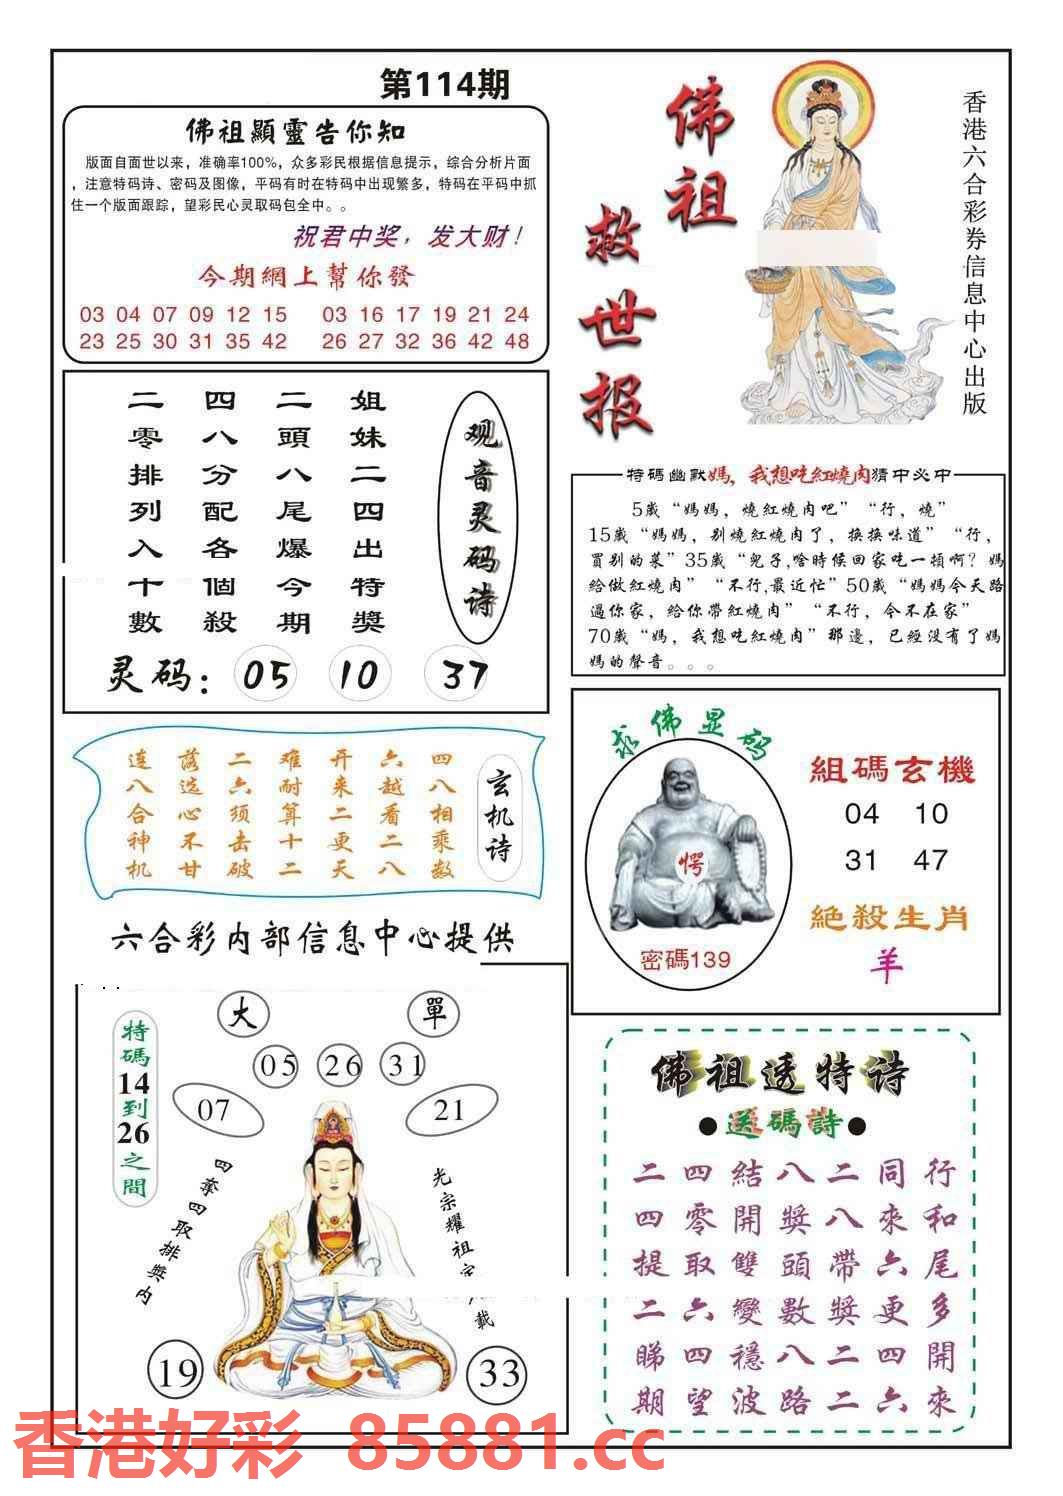 第114期
佛祖顯靈告你知
版面自面世以来，准确率100%，众多彩民根据信息提示，综合分析片面
，注意特码诗、密码及图像，平码有时在特码中出现繁多，特码在平码中抓
住一个版面跟踪，望彩民心灵取码包全中。。
祝君中奖，发大财！
今期網上幫你發
03 04 07 09 12 15 03 16 17 19 21 24
23 25 30 31 35 42 26 27 32 36 42 48
佛祖
救世报
香港六合彩券信息中心出版
观音灵码诗
姐妹二四出特獎
二頭八尾爆今期
四八分配各個殺
二零排列入十數
灵码：05 10 37
特碼幽默媽，我想吃紅燒肉猜中必中
5歲“媽媽，燒紅燒肉吧”“行，燒”
15歲“媽媽，别燒紅燒肉了，换换味道”“行，
買别的菜”35歲“兒子,啥時候回家吃一頓啊？媽
給做紅燒肉”“不行,最近忙”50歲“媽媽今天路
過你家，給你帶紅燒肉”“不行，今不在家”
70歲“媽，我想吃紅燒肉”那邊，已經没有了媽
媽的聲音。。。
玄机诗
四八相乘数
六越看二八
开来二更天
难耐算十二
二六须击破
落选心不甘
连八合神机
求佛显码
愕
密碼139
組碼玄機
04 10
31 47
絕殺生肖
羊
六合彩内部信息中心提供
大
單
特碼14到26之間
05 26 31
07
21
四奪四取排獎内
光宗耀祖
載
19
33
佛祖透特诗
●送碼詩●
行和尾多開來
同來六更四六
二八帶獎二二
八獎頭數八路
結開雙變穩波
四零取六四望
二四提二睇期
香港好彩 85881.cc